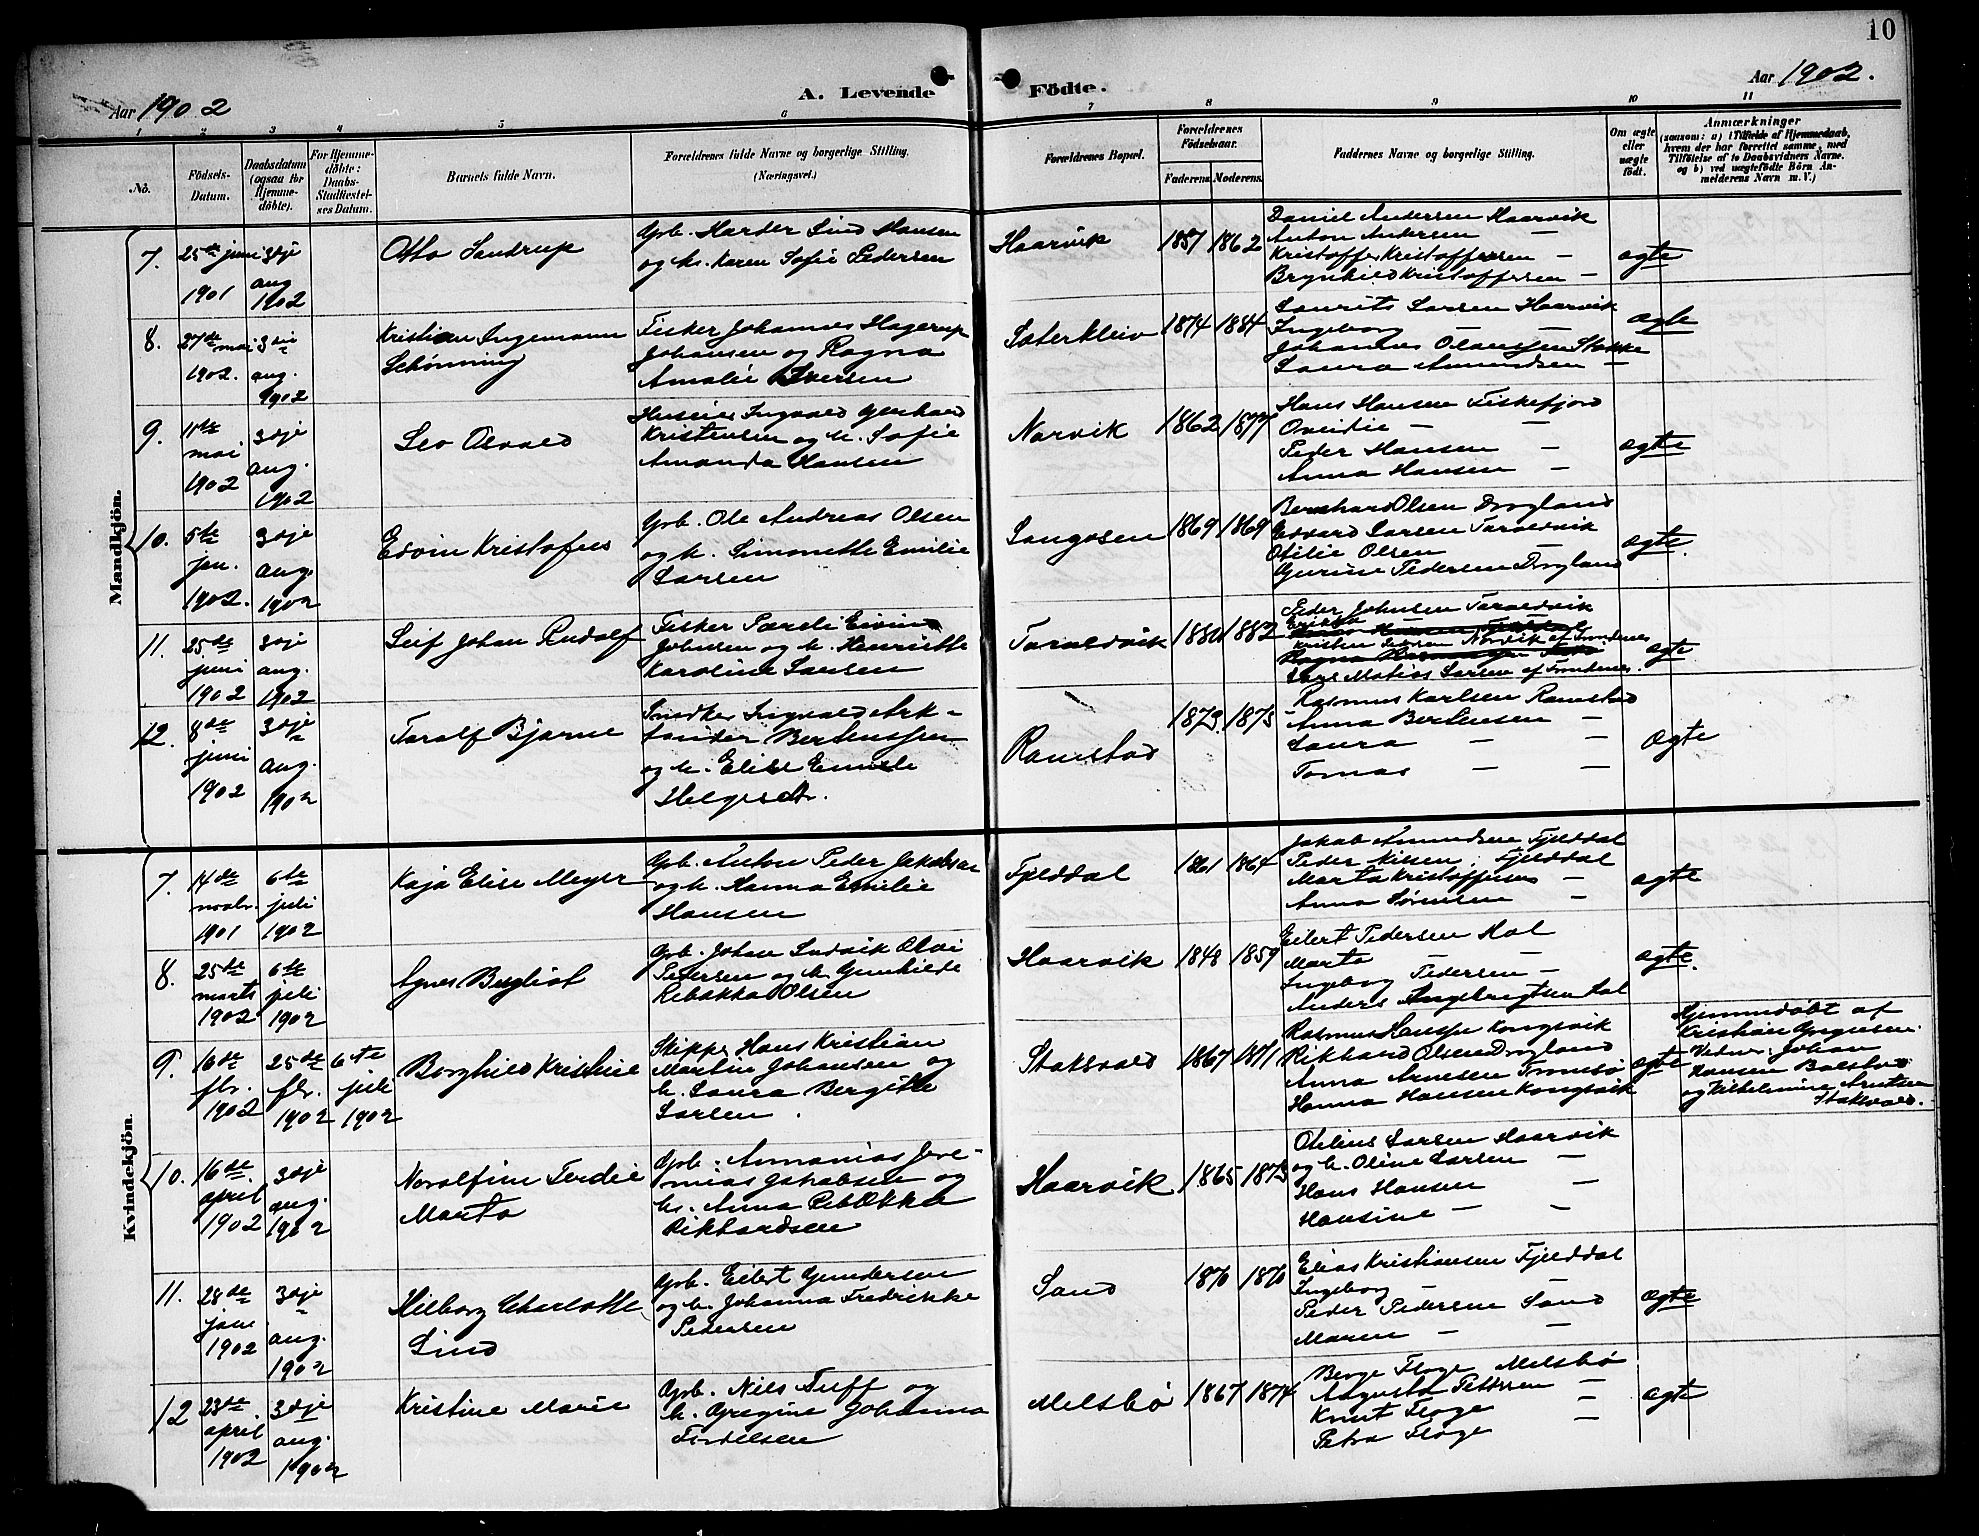 10
Aar 1902
A. Levende
Födte.
Aar 1902.
1 2 3 4 5 6 7 8 9 10 11
No.
Födsels-
Datum.
Daabsdatum
(ogsaa for
Hjemme-
döbte).
For Hjemme-
döbte:
Daabs-
Stadfæstel-
ses Datum.
Barnets fulde Navn.
Forældrenes fulde Navne og borgerlige Stilling.
(Næringsvei.)
Forældrenes Bopæl.
Forældrenes
Födselsaar.
Faderens. Moderens.
Faddernes Navne og borgerlige Stilling.
Om ægte
eller
uægte
födt.
Anmærkninger
(saasom: a) i Tilfælde af Hjemmedaab,
hvem der har forrettet samme, med
Tilföielse af to Daabsvidners Navne.
og b) ved uægtefödte Börn An-
melderens Navn m. V.)
Mandkjön.
7.
25de juni
1901
3dje
aug.
1902
Otto Sandrup
Gbr. Harder Lind Hansen
og h. Karen Sofie Pedersen
Haarvik
1857 1862
Daniel Andersen Haarvik
Anton Andersen —
Kristoffer Kristoffersen —
Brynhild Kristoffersen —
ægte
8.
27de mai
1902.
3die
aug.
1902
Kristian Ingemann
Schönning
Fisker Johannes Hagerup
Johansen og Ragna
Amalie Iversen
Sæterkleiv
1874 1884
Laurits Larsen Haarvik
Ingeborg — —
Johannes Olaussen Stokke
Laura Amundsen —
ægte
9.
11te
mai
1902
3dje
aug.
1902
Leo Osvald
Huseier Ingvald Gerhard
Kristensen og h. Sofie
Amanda Hansen
Narvik
1862 1877
Hans Hansen Fiskefjord
Ovidie — —
Peder Hansen —
Anna Hansen —
ægte
10.
5te
jan.
1902.
3dje
aug.
1902
Edvin Kristofus
Gbr. Ole Andreas Olsen
og h. Simonette Emilie
Larsen
Sangosen
1869 1869
Bernhard Olsen Drogland
Edvard Larsen Taraldvik
Otilie Olsen —
Gurine Pedersen Drogland
ægte.
11.
25de
juni
1902
3dje
aug.
1902
Leif Johan Rudolf
Fisker Pareli Eivind
Johnsen og h. Henriette
Karoline Larsen
Taraldvik
1880 1882
Peder Johnsen Taraldvik
Erikka
Kristen Larsen Nordvik af Trondenes
Lars Matias Larsen af Trondenes.
ægte
12.
8de
juni
1902
3dje
aug.
1902
Toralf Bjarne
Snedker Ingvald Ark-
lander Berthenssen
og h. Elise Emelie
Helgesdtr.
Ramstad
1873 1875
Rasmus Karlsen Ramstad
Anna Berthensen —
Laura — —
Tomas — —
ægte
Kvindekjön
7.
14de
novbr.
1901
6te
juli
1902
Kaja Elise Meyer
Gbr. Anton Peder Jakobsen
og h. Hanna Emilie
Hansen
Fjelddal
1861 1864
Jakob Amundsen Fjelddal
Peder Nilsen, Fjelddal
Marta Kristoffersen —
Anna Sørensen —
ægte
8.
25de
marts
1902
6te
juli
1902
Agnes Bergliot
Gbr. Johan Ludvik Olai
Pedersen og h. Gunhilde
Rebækka Olsen
Haarvik
1848 1859
Eilert Pedersen Hol
Marta — —
Ingeborg Pedersen —
Anders Ingebrigtsen Hol
ægte.
9.
16de
fbr.
1902
25de
fbr.
1902
6te
juli
1902
Borghild Kristine
Skipper Hans Kristian
Martin Johansen og
h. Laura Bergitte
Larsen.
Staksvold
1867 1871
Rasmus Hanssen Kongsvik
Rikhard Olsen Drogland
Anna Arnesen Tromsø
Hanna Hansen Kongsvik
ægte
Hjemmedøbt af
Kristian Jørgensen.
Vidner: Johan
Hansen Bolstad
og Vilhelmine Arntsen
Staksvold.
10.
16de
april
1902
3dje
aug.
1902
Noralfine Ferdie
Marta
Gbr. Annanias Jere-
mias Jakobsen og
h. Anna Rebækka
Rikhardsen
Haarvik
1865 1873
Otelius Larsen Haarvik
og h. Oline Larsen —
Hans Hansen —
Hansine — —
11.
28de
jan.
1902
3dje
aug.
1902
Hilborg Charlotte
Lind
Gbr. Eilert Gundersen
og h. Johanna Fredrikke
Pedersen
Sand
1870 1870
Elias Kristiansen Fjelddal
Ingeborg — —
Peder Pedersen Sand
Maren — —
ægte
12
23de
april
1902
3dje
aug.
1902
Kristine Marie
Gbr. Niels Tuff og
h. Gregine Johanna
Fredelsen
Melsbö
1867 1874
Berge Floge Melsbö
Augusta Pettersen —
Knut Floge —
Petra Floge
ægte